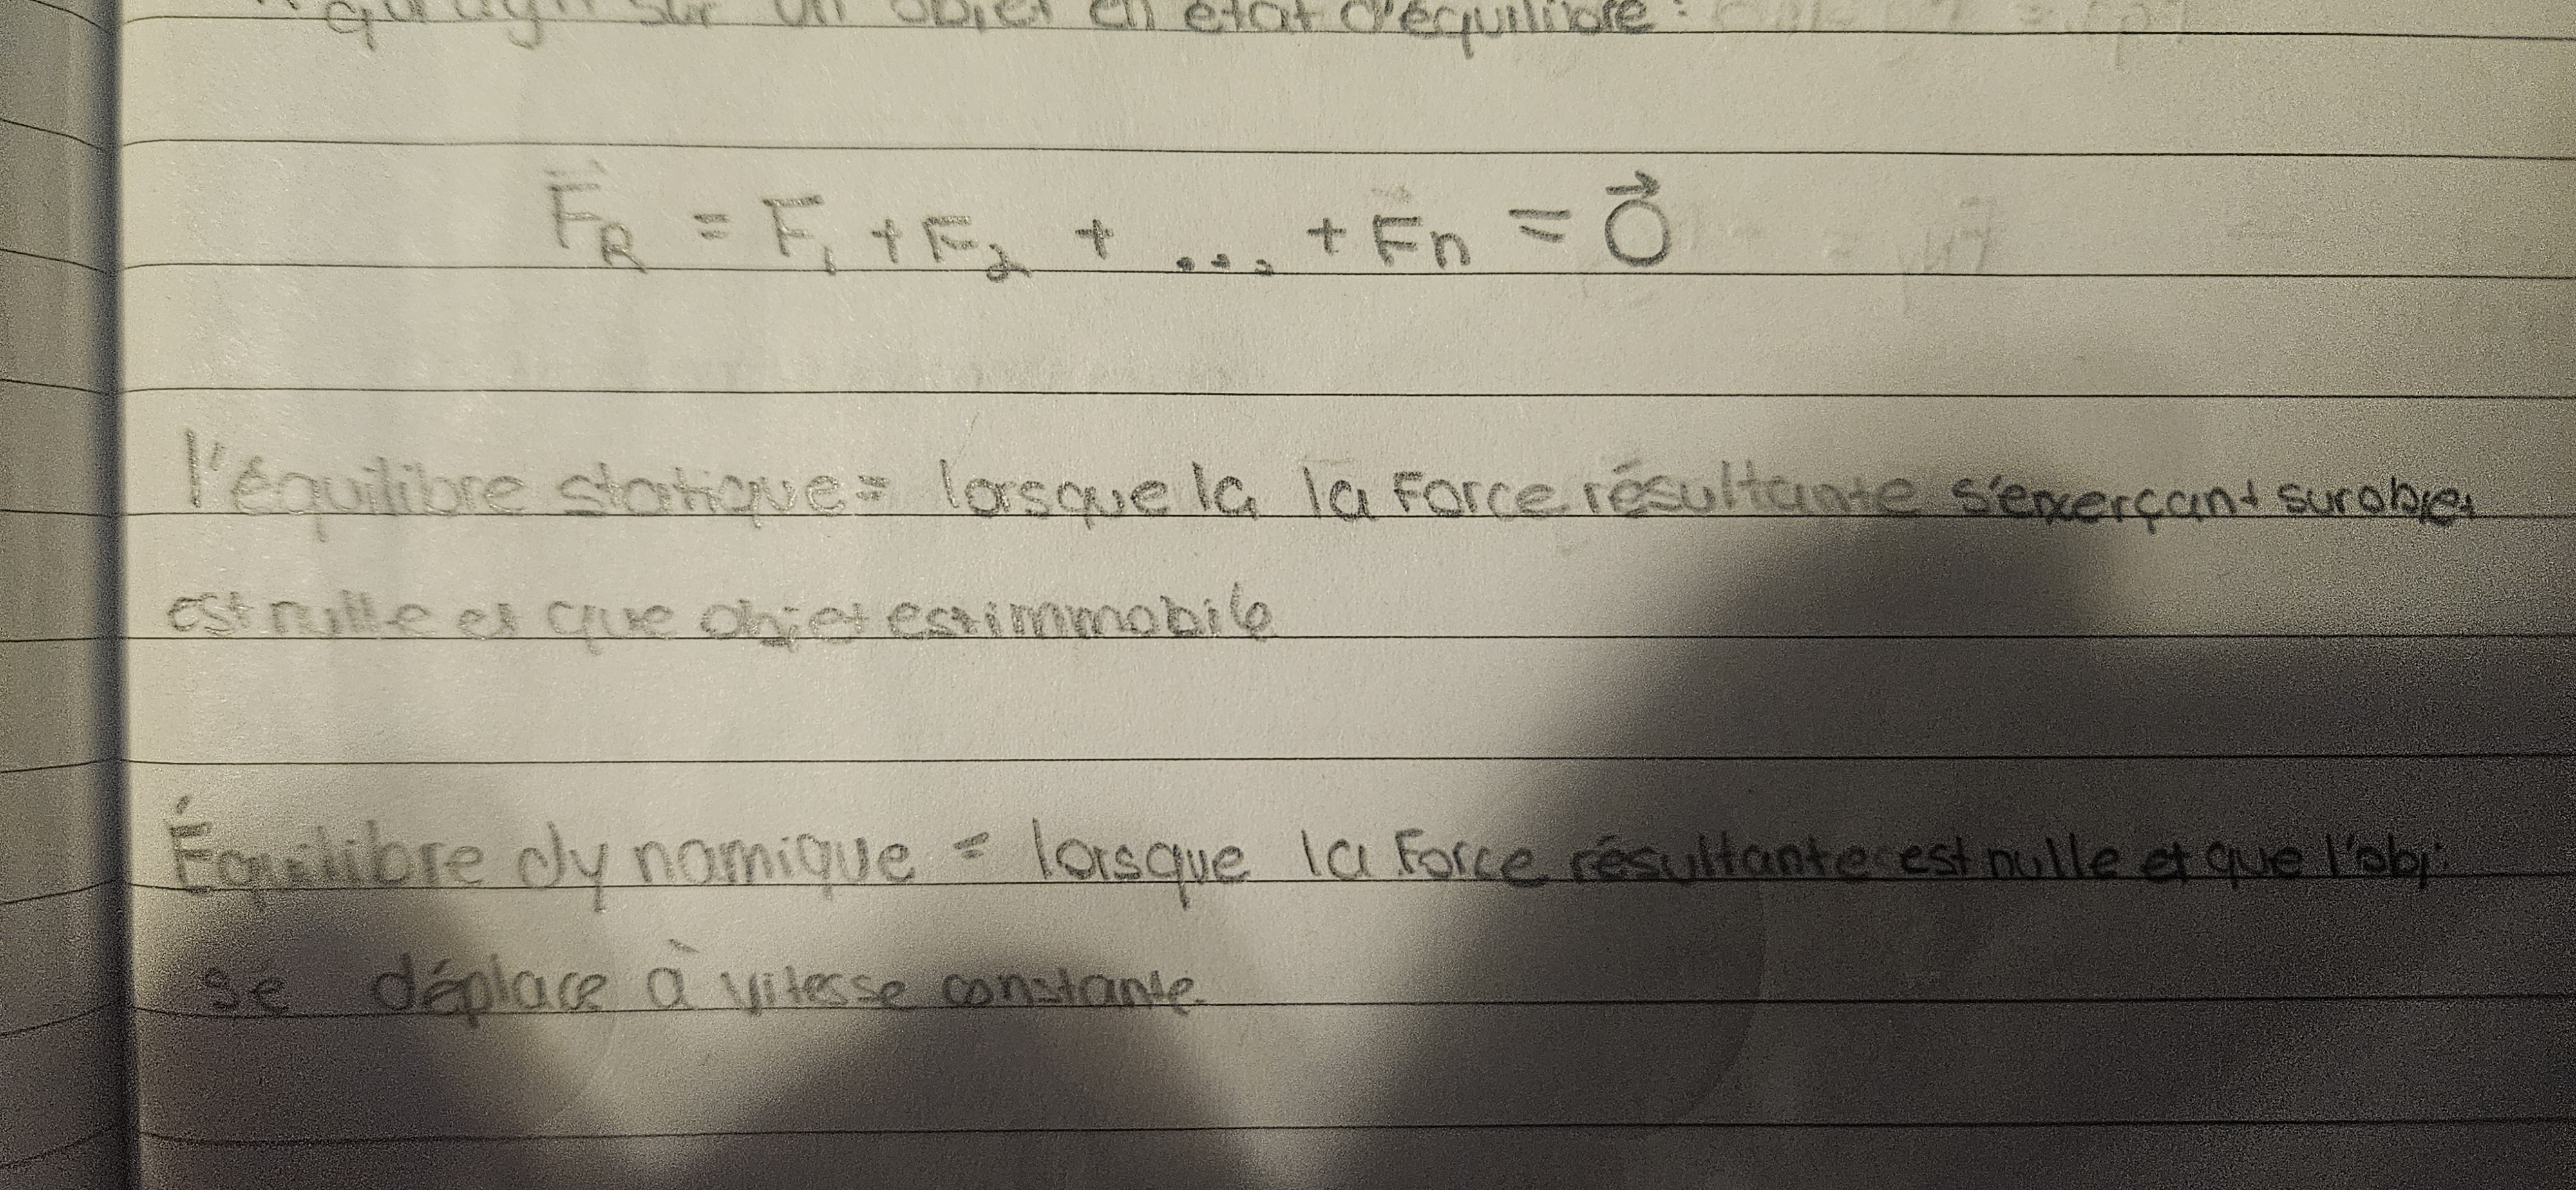 sur un objet en état d'équilibre :
F⃗R = F1 + F2 + ... + F⃗n = 0⃗
l'équilibre statique = lorsque la la Force résultante s'exerçant sur objet
est nulle et que objet est immobile
Équilibre dynamique = lorsque la Force résultante est nulle et que l'obj
se déplace à vitesse constante